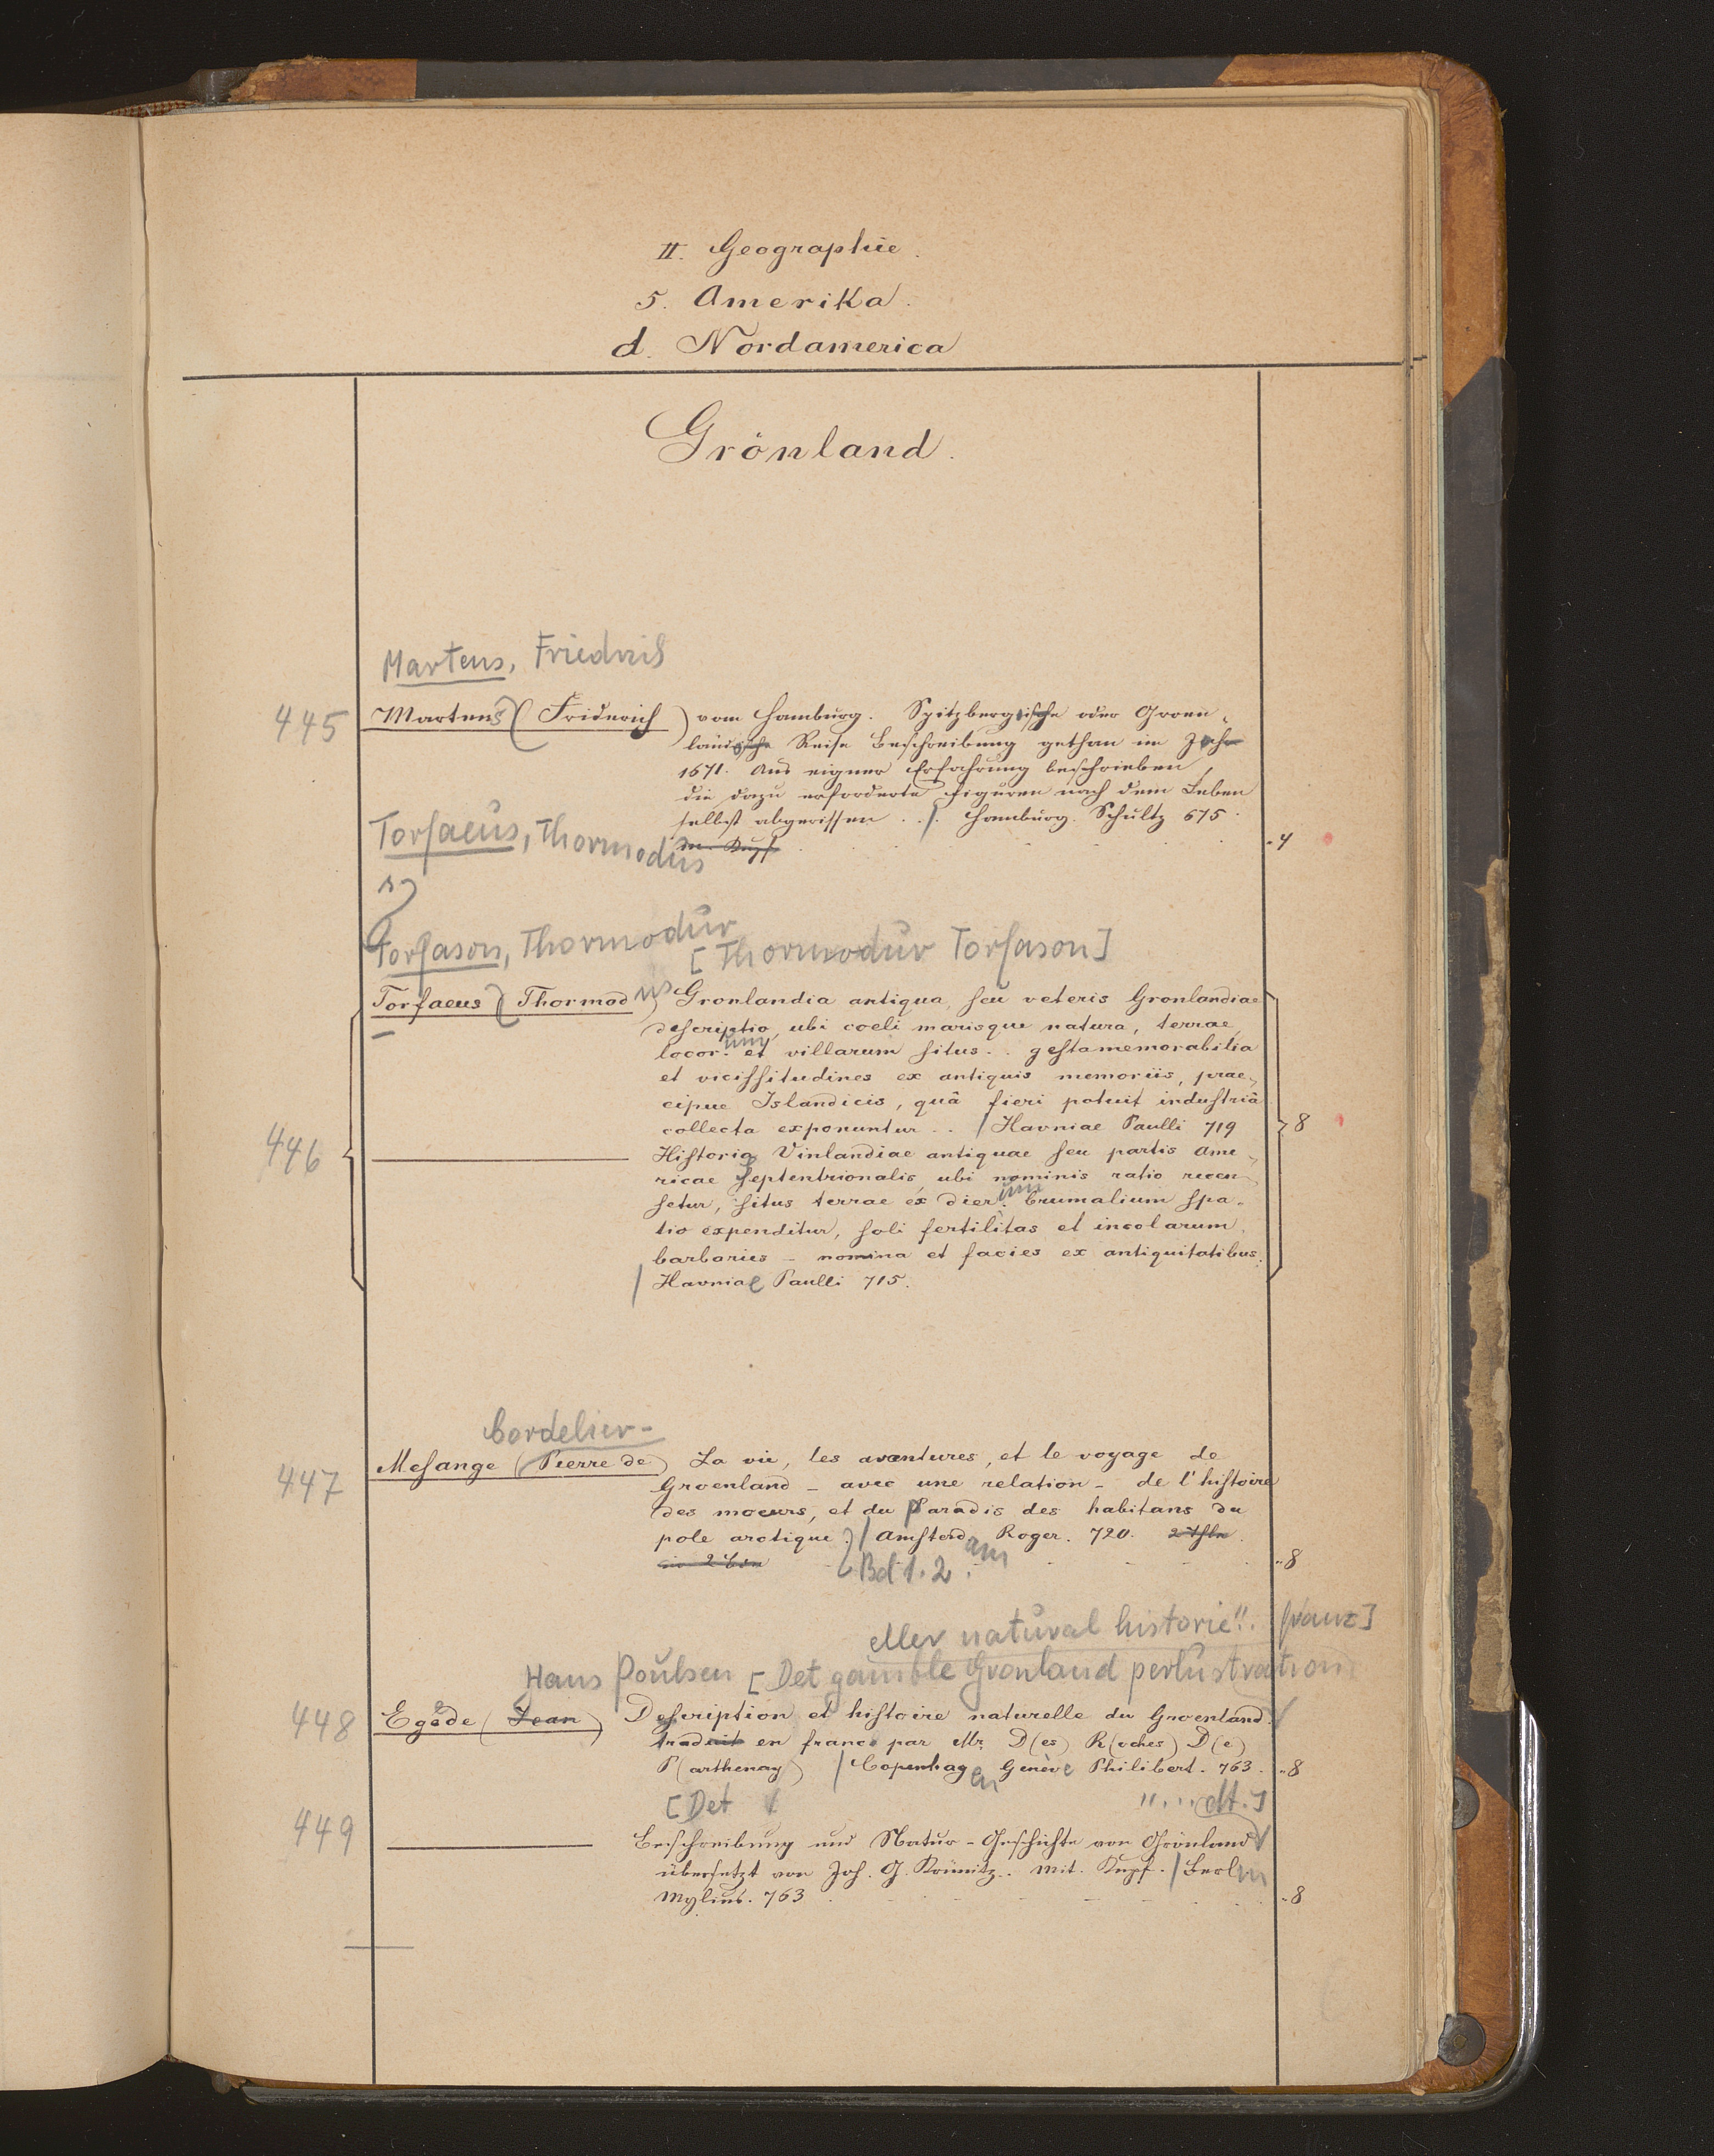 II. Geographie.
5. Amerika.
d. Nordamerica
Grönland.
Martens, Friedrich
445 Martens (Friderich) vom Hamburg. Spitzbergische oder Groen-
ländische Reise Beschreibung gethan im Jahr
1671. Aus eigner Erfahrung beschrieben,
die dazu erforderte Figuren nach dem Leben
selbst abgerissen . . /. Hamburg. Schultz 675.
m. Kupf. 4
Torfaeus, Thormodus
Torfason, Thormodur
[Thormodur Torfason]
Torfaeus (Thormod us) Gronlandia antiqua, seu veteris Gronlandiae
descriptio, ubi coeli marisque natura, terrae,
locor.um et villarum situs . . gesta memorabilia
et vicissitudines ex antiquis memoriis, prae-
cipue Islandicis, quâ fieri potuit industriâ
collecta exponuntur . . / Havniae Paulli 719 8
446 ——— Historia Vinlandiae antiquae seu partis Ame-
ricae Septentrionalis, ubi nominis ratio recen-
setur, situs terrae ex dier.um brumalium spa-
tio expenditur, soli fertilitas et incolarum
barbaries – nomina et facies ex antiquitatibus.
/ Havniae Paulli 715.
Cordelier-
447 Mesange (Pierre de) La vie, les avantures, et le voyage de
Groenland – avec une relation – de l'histoire
des moeurs, et du Paradis des habitans du
pole arctique. / Amsterdam Roger. 720. 2 Thle
in 2 Bdn Bd 1. 2. 8
eller natural historie!!. franz]
Hans Poulsen [Det gamble Gronland perlustration
448 Egede (Jean) Description et histoire naturelle du Groenland.
traduit en franc. par Mr. D(es) R(oches) D(e)
P(arthenay) / Copenhagen Genève Philibert. 763. 8
[Det / " . . . dt.]
449 ——— Beschreibung und Natur-Geschichte von Grönland
übersetzt von Joh. G. Krünitz. Mit. Kupf. / Berlin
Mylius. 763 8